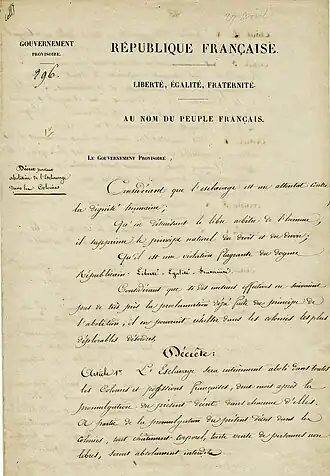 27 avril
GOUVERNEMENT
PROVISOIRE.
RÉPUBLIQUE FRANÇAISE.
296.
LIBERTÉ, ÉGALITÉ, FRATERNITÉ.
AU NOM DU PEUPLE FRANÇAIS.
LE GOUVERNEMENT PROVISOIRE,
Décret portant
abolition de l'Esclavage
dans les Colonies
Considérant que l'esclavage est un attentat contre
la dignité humaine;
Qu'en détruisant le libre arbitre de l'homme,
il supprime le principe naturel du droit et du devoir;
Qu'il est une violation flagrante du dogme
Républicain: Liberté - Égalité - Fraternité.
Considérant que si des mesures effectives ne suivaient
pas de très près la proclamation déjà faite du principe de
l'abolition, il en pourrait résulter dans les colonies les plus
déplorables désordres,
Décrète:
Article 1er L'Esclavage sera entièrement aboli dans toutes
les Colonies et possessions françaises, deux mois après la
promulgation du présent décret dans chacune d'elles.
À partir de la promulgation du présent décret dans les
colonies, tout châtiment corporel, toute vente de personnes non
libres, seront absolument interdits